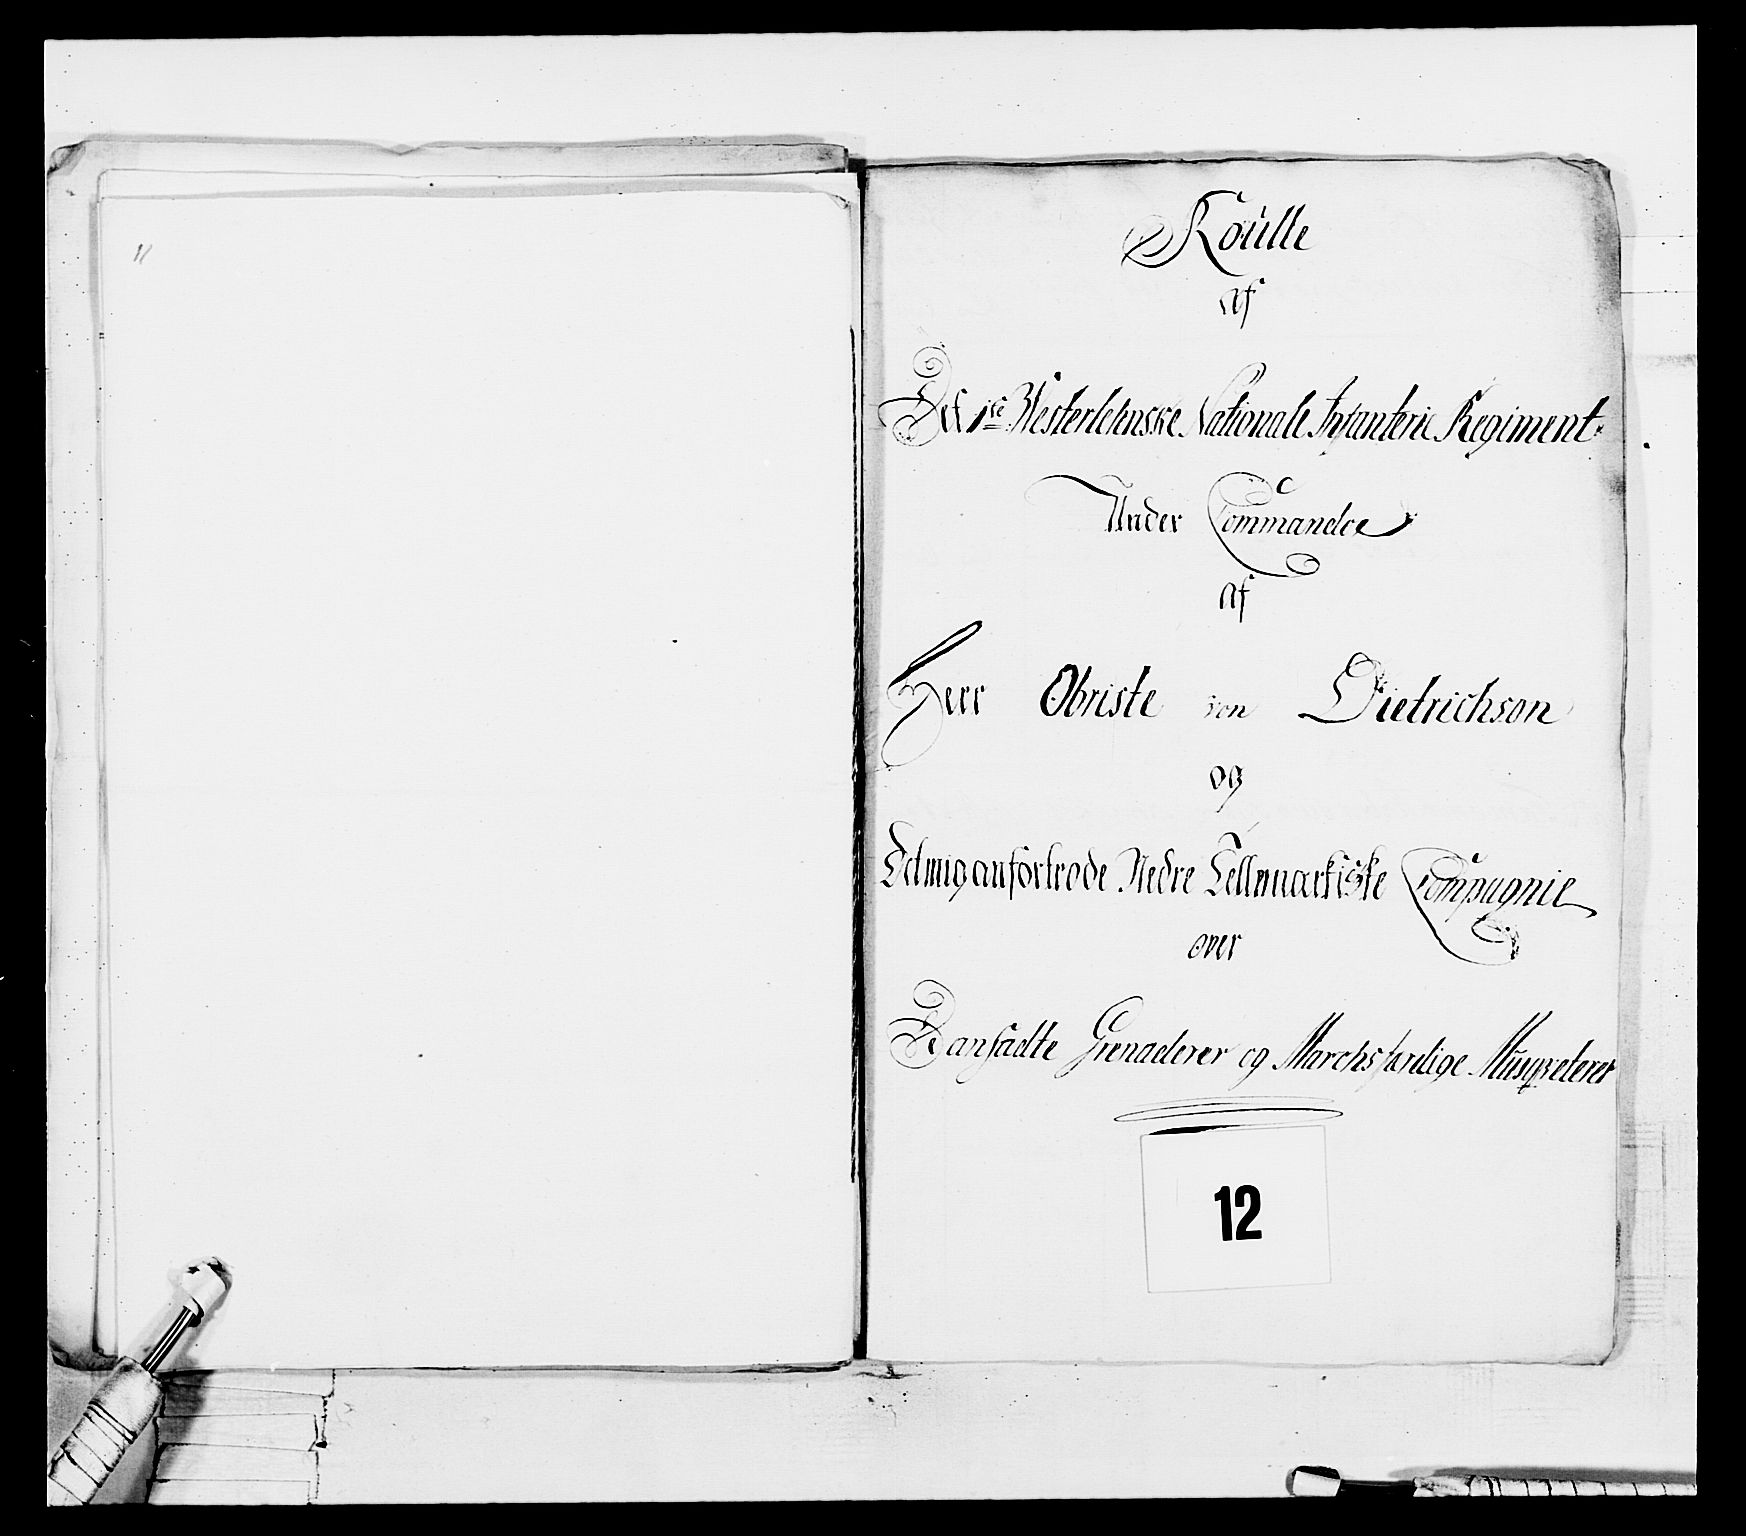 11
Roulle
af
Det 1ste Westerlehnske Nationale Infanterie Regiment
Under Commandoe
af
Herr Obriste von Dietrichson
og
Det mig anfortrode Nedre Tellemarkiske Compagnie
over
De ansadte Grenaderer og Marchsfærdige Musqveterer
12